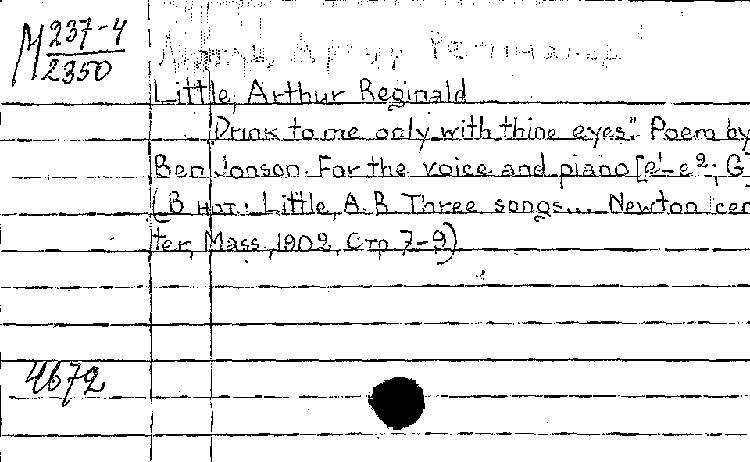 M 237-4
2350
Литтл, Артур Регинальд
Little, Arthur Reginald
"Drink to me only with thine eyes". Poem by
Ben Jonson. For the voice and piano [e¹-e²; G
(В нот.: Little, A.R. Three songs... Newton cen
ter, Mass, 1902, стр. 7-9)
4672